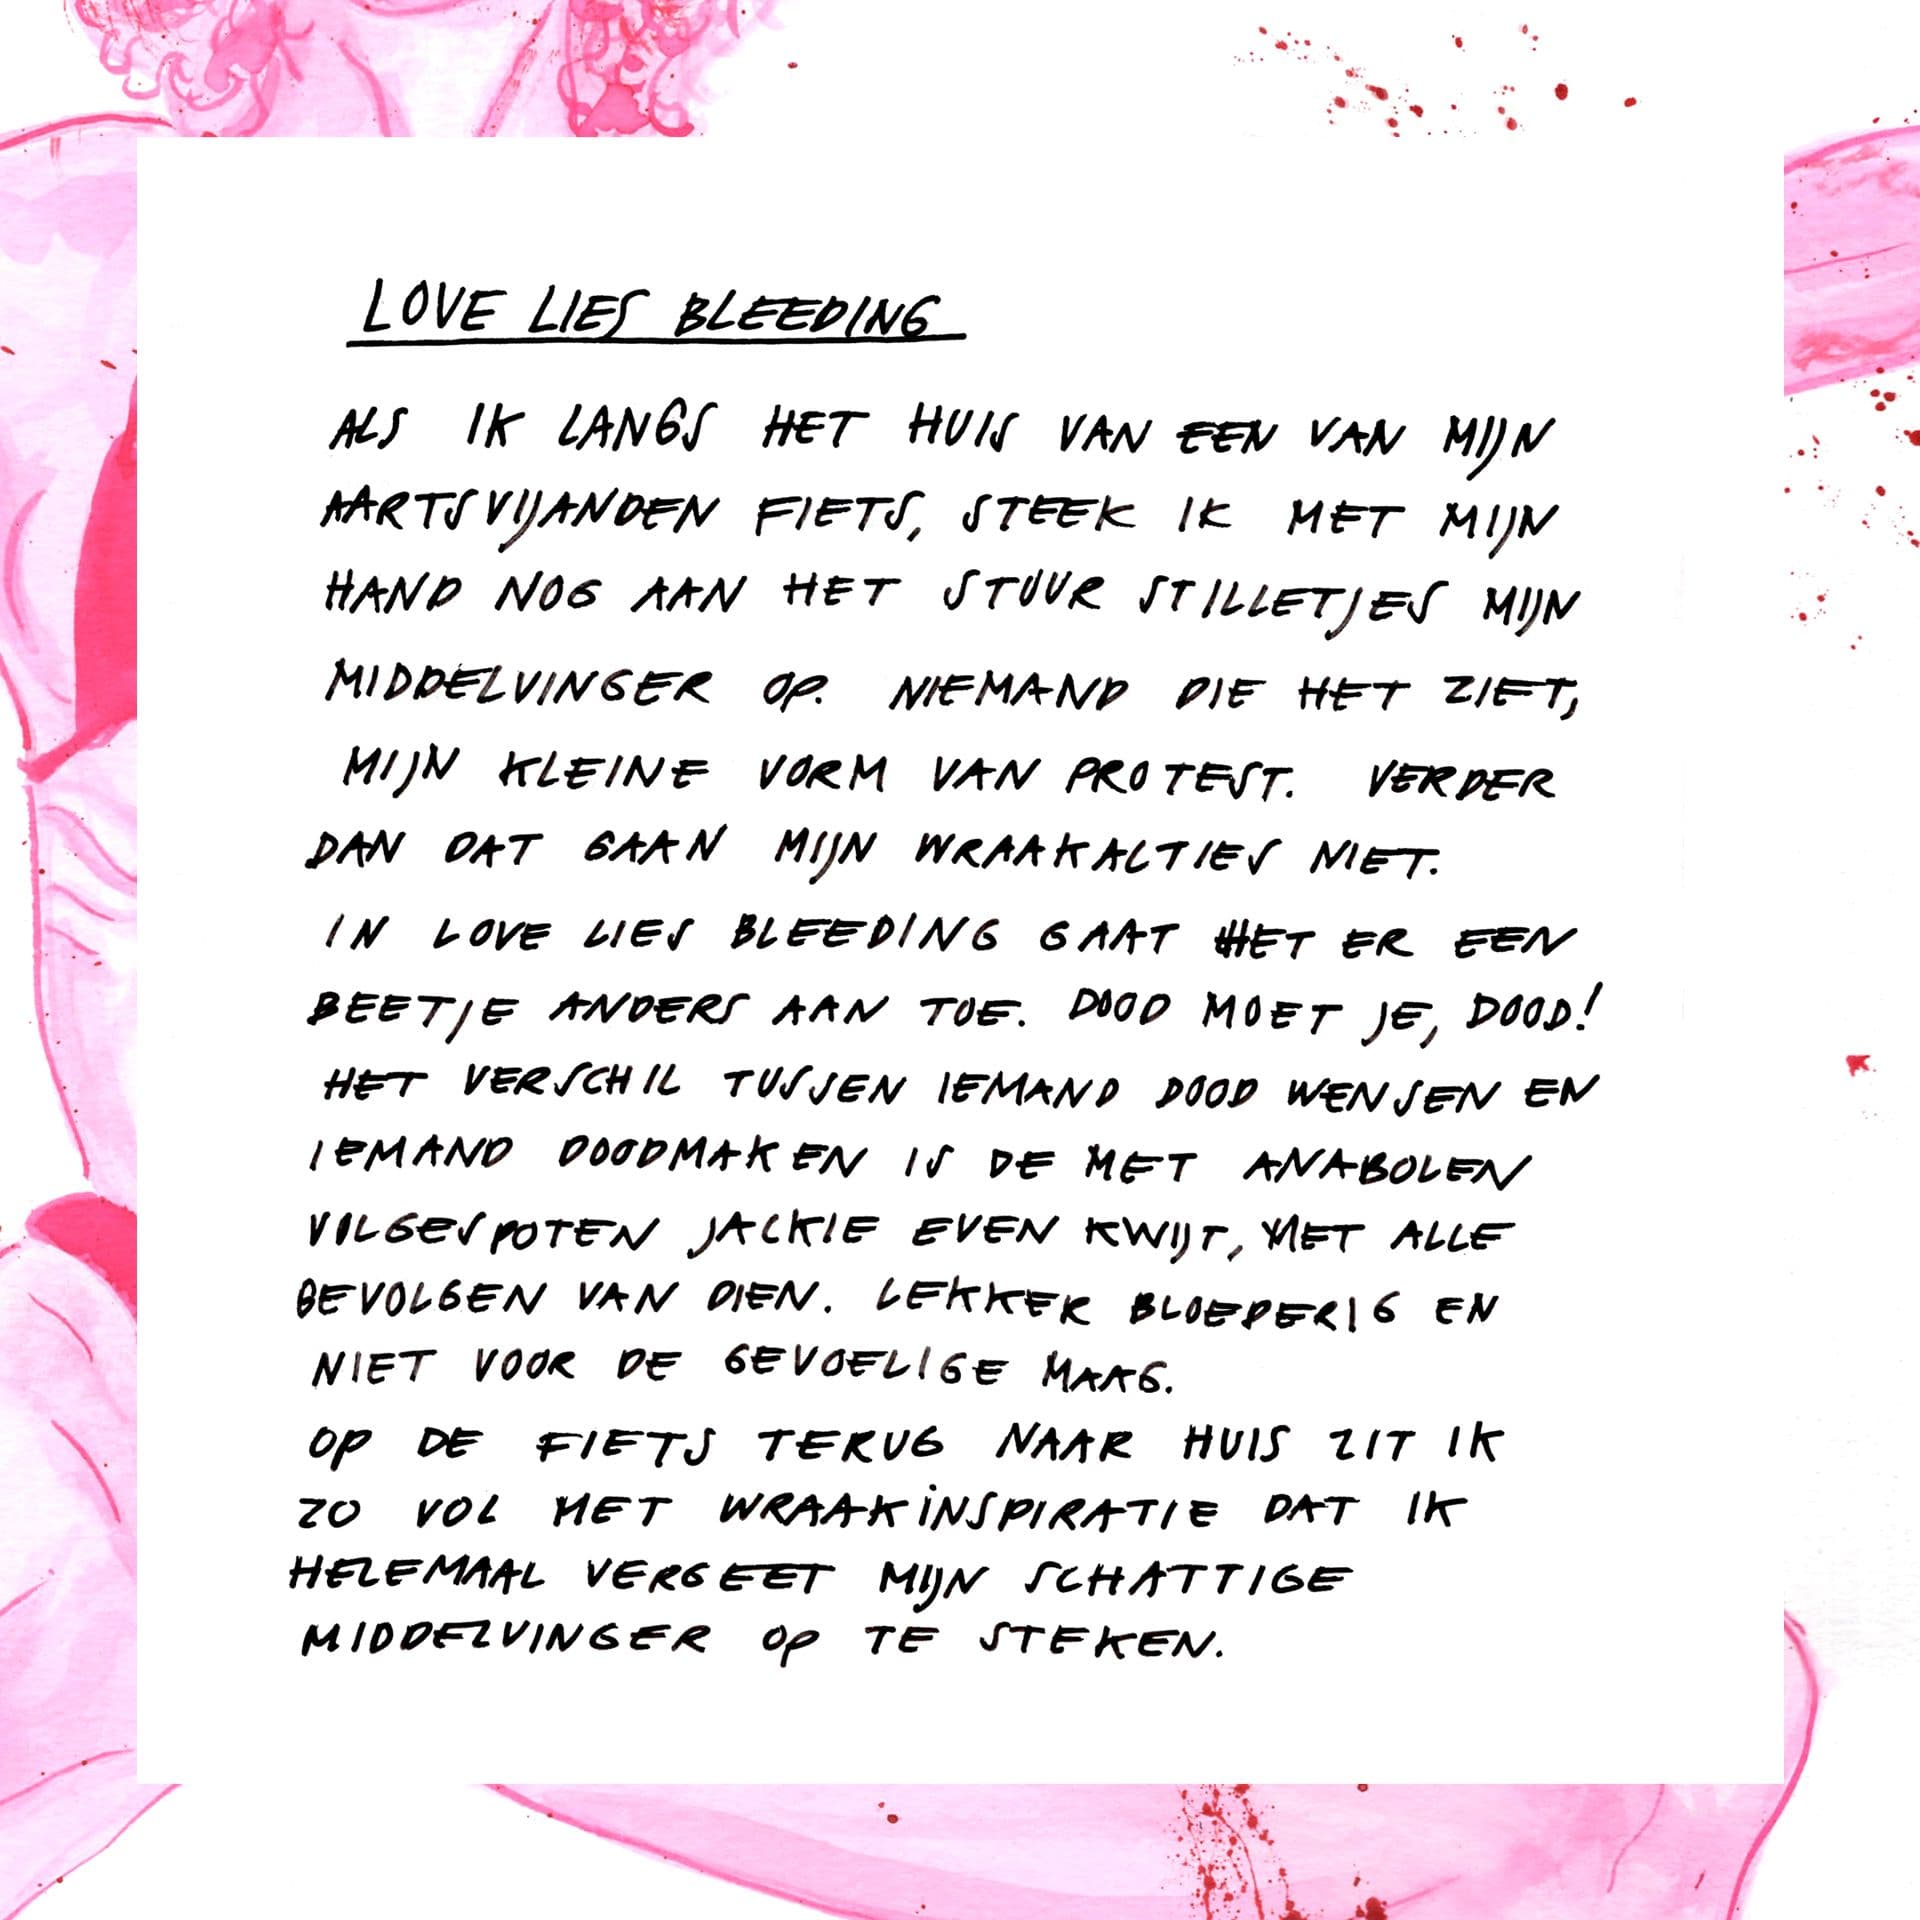 LOVE LIES BLEEDING
ALS IK LANGS HET HUIS VAN EEN VAN MIJN
AARTSVIJANDEN FIETS, STEEK IK MET MIJN
HAND NOG AAN HET STUUR STILLETJES MIJN
MIDDELVINGER OP. NIEMAND DIE HET ZIET,
MIJN KLEINE VORM VAN PROTEST. VERDER
DAN DAT GAAN MIJN WRAAKACTIES NIET.
IN LOVE LIES BLEEDING GAAT HET ER EEN
BEETJE ANDERS AAN TOE. DOOD MOET JE, DOOD!
HET VERSCHIL TUSSEN IEMAND DOOD WENSEN EN
IEMAND DOODMAKEN IS DE MET ANABOLEN
VOLGESPOTEN JACKIE EVEN KWIJT, MET ALLE
GEVOLGEN VAN DIEN. LEKKER BLOEDERIG EN
NIET VOOR DE GEVOELIGE MAAG.
OP DE FIETS TERUG NAAR HUIS ZIT IK
ZO VOL MET WRAAKINSPIRATIE DAT IK
HELEMAAL VERGEET MIJN SCHATTIGE
MIDDELVINGER OP TE STEKEN.